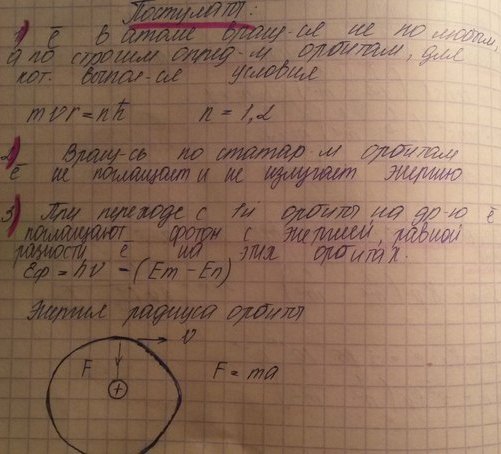 Постулаты:
1) ē в атоме вращ-ся не по любым,
а по строгим опред-м орбитам, для
кот. выпол-ся условия
mvr = nħ n = 1,2
2) Вращ-сь по статар-м орбитам
ē не поглащает и не излугает энергию
3) При переходе с 1й орбиты на др-ю ē
поглащают фотон с энергией, равной
разности ē на этих орбитах.
Eф = hν = (Em - En)
Энергия радиуса орбиты
v
F F = ma
+